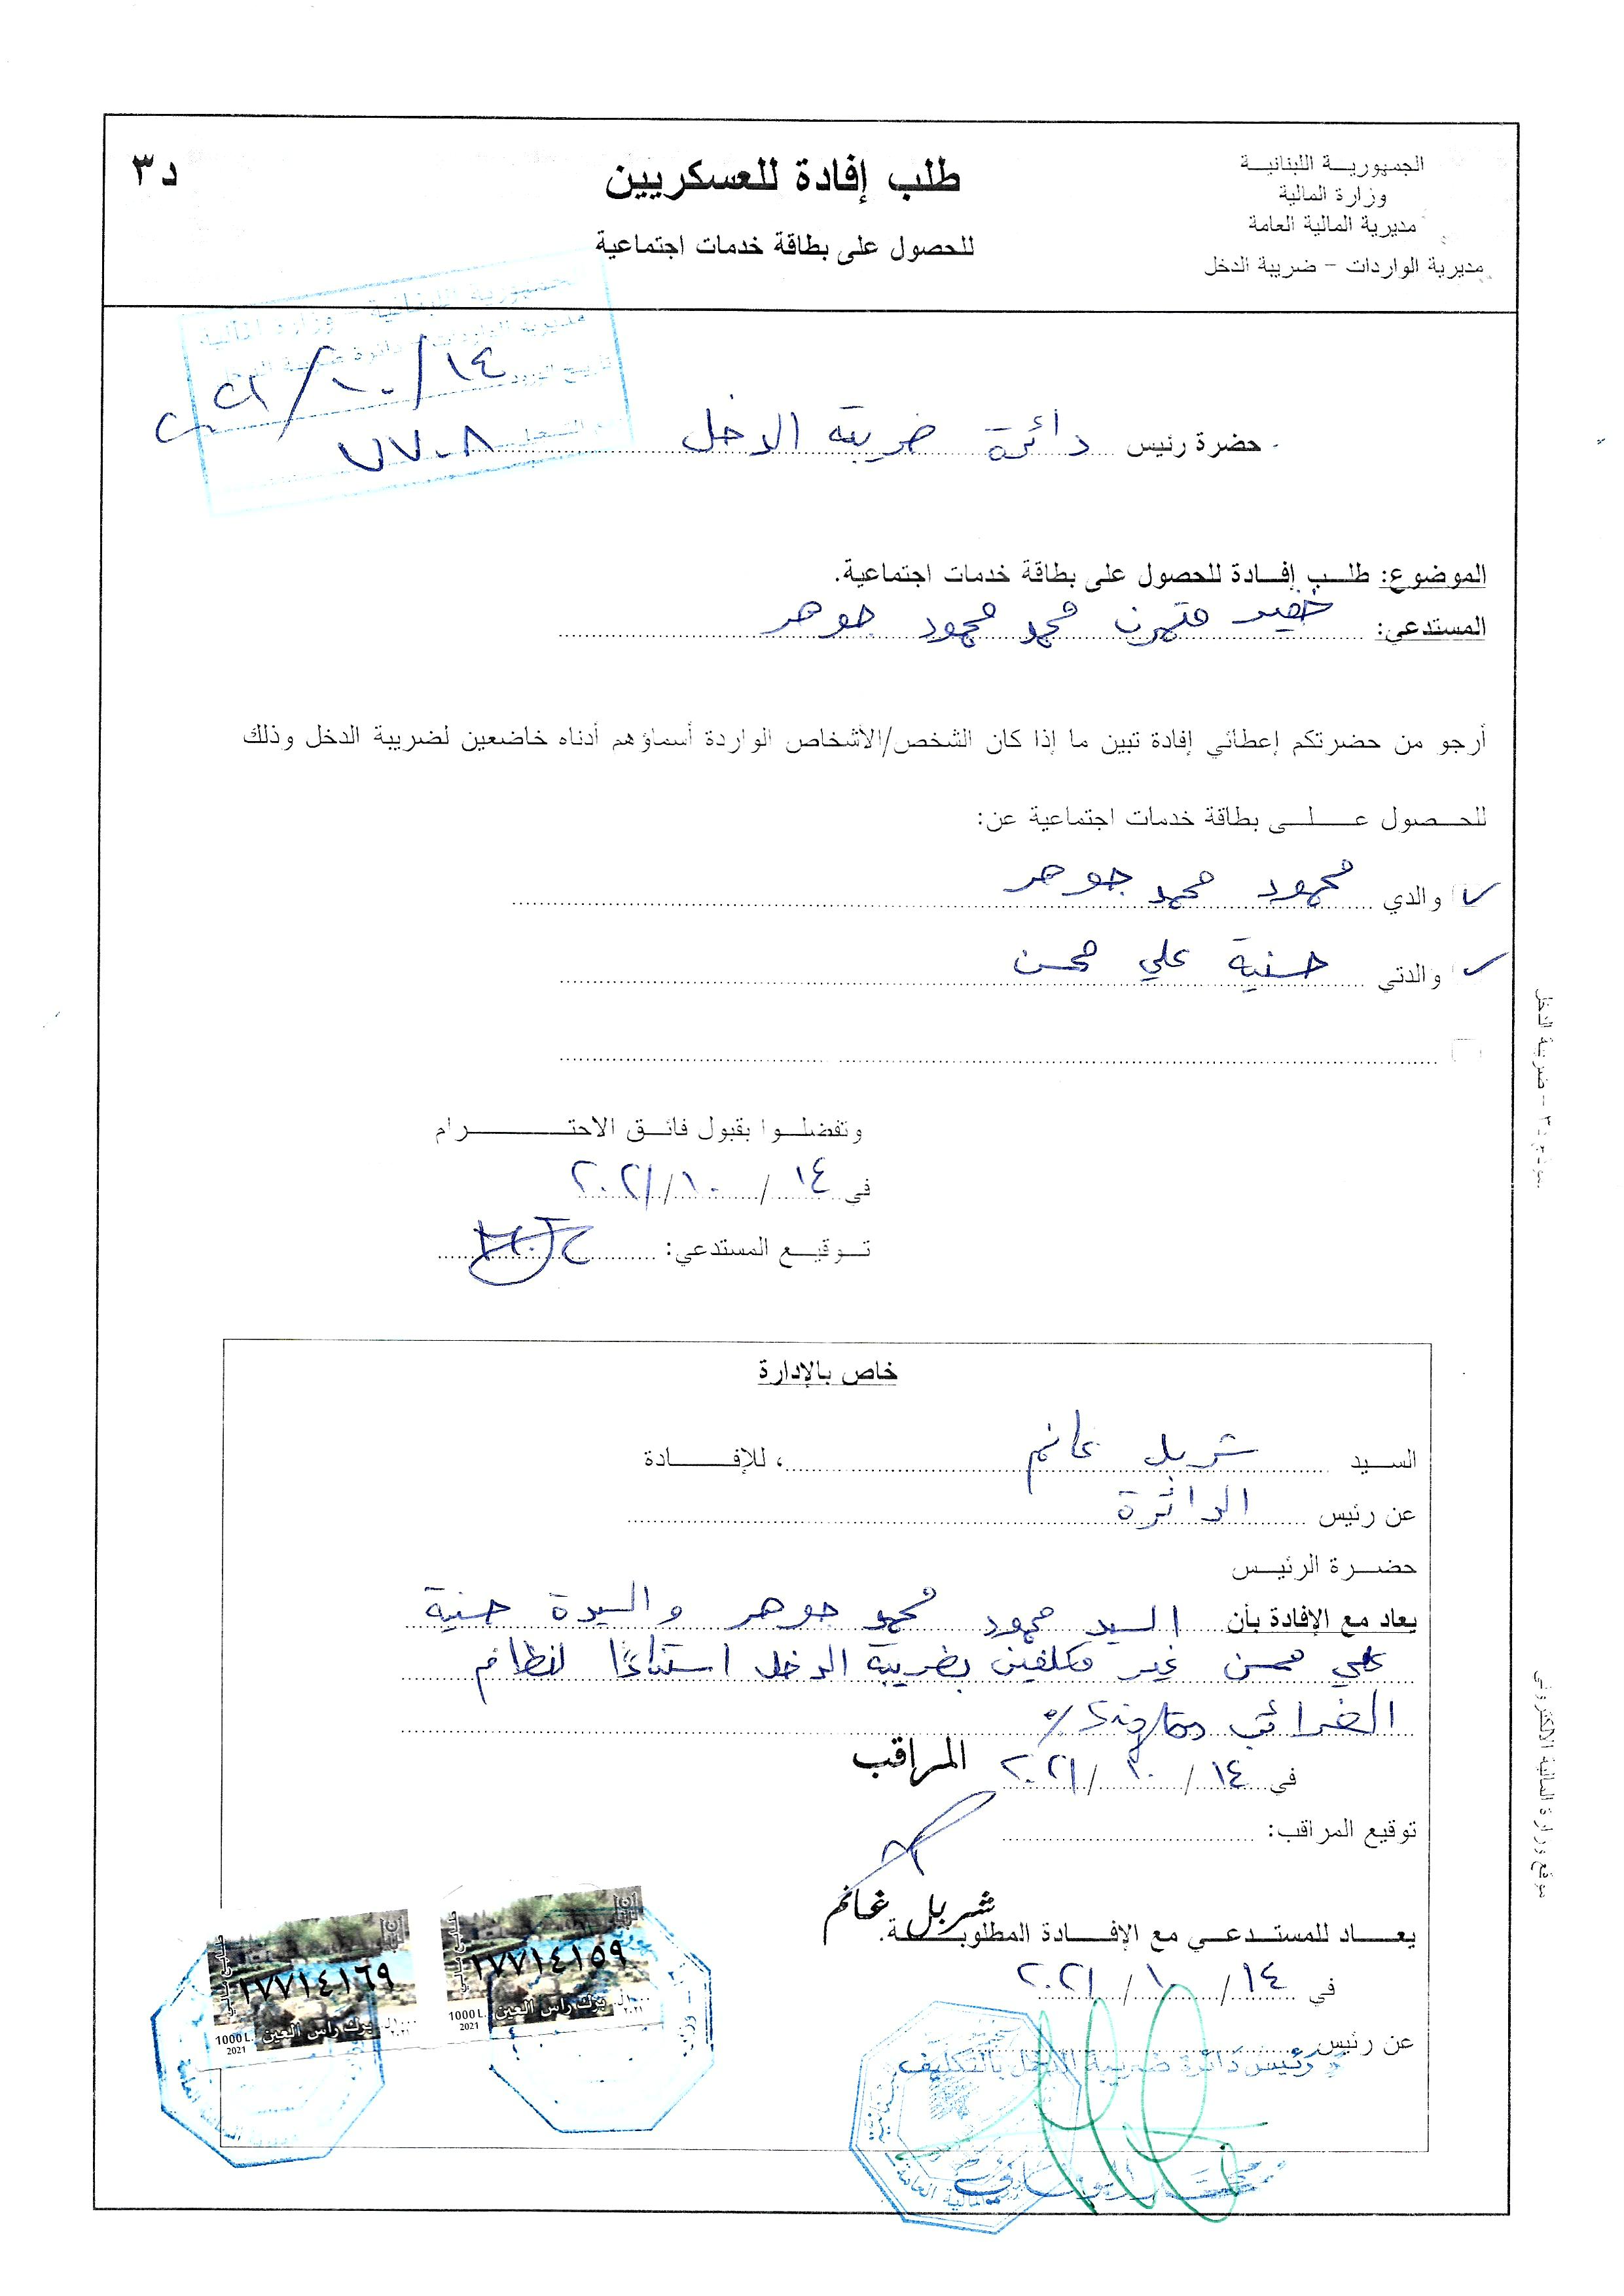 الجمهورية اللبنانية
وزارة المالية
مديرية المالية العامة
مديرية الواردات - ضريبة الدخل
طلب إفادة للعسكريين
للحصول على بطاقة خدمات اجتماعية
د٣
الجمهورية اللبنانية - وزارة المالية
٢٠٢١/١٠/١٤
٧٧٠٨
حضرة رئيس دائرة ضريبة الدخل
الموضوع: طلب إفادة للحصول على بطاقة خدمات اجتماعية.
المستدعي: محمد محمود جوهر
أرجو من حضرتكم إعطائي إفادة تبين ما إذا كان الشخص/الأشخاص الواردة أسماؤهم أدناه خاضعين لضريبة الدخل وذلك
للحصول على بطاقة خدمات اجتماعية عن:
والدي محمود محمد جوهر
والدتي حسنية علي محسن
وتفضلوا بقبول فائق الاحترام
في ١٤/١٠/٢٠٢١
توقيع المستدعي:
خاص بالإدارة
السيد شربل غانم، للإفادة
عن رئيس الدائرة
حضرة الرئيس
يعاد مع الإفادة بأن السيد محمود محمد جوهر والسيدة حسنية
علي محسن غير مكلفين بضريبة الدخل استنادًا لنظام
الضرائب
في ١٤/١٠/٢٠٢١
المراقب
توقيع المراقب:
شربل غانم
يعاد للمستدعي مع الإفادة المطلوبة.
في ١٤/١٠/٢٠٢١
عن رئيس
رئيس دائرة ضريبة الدخل بالتكليف
طابع مالي
٢٧٧١٤١٥٩
1000 L.
2021
برك راس العين
٢٠٢١
طابع مالي
٢٧٧١٤١٦٩
1000 L.
2021
برك راس العين
٢٠٢١
نموذج د٣ - ضريبة الدخل
موقع وزارة المالية الالكتروني